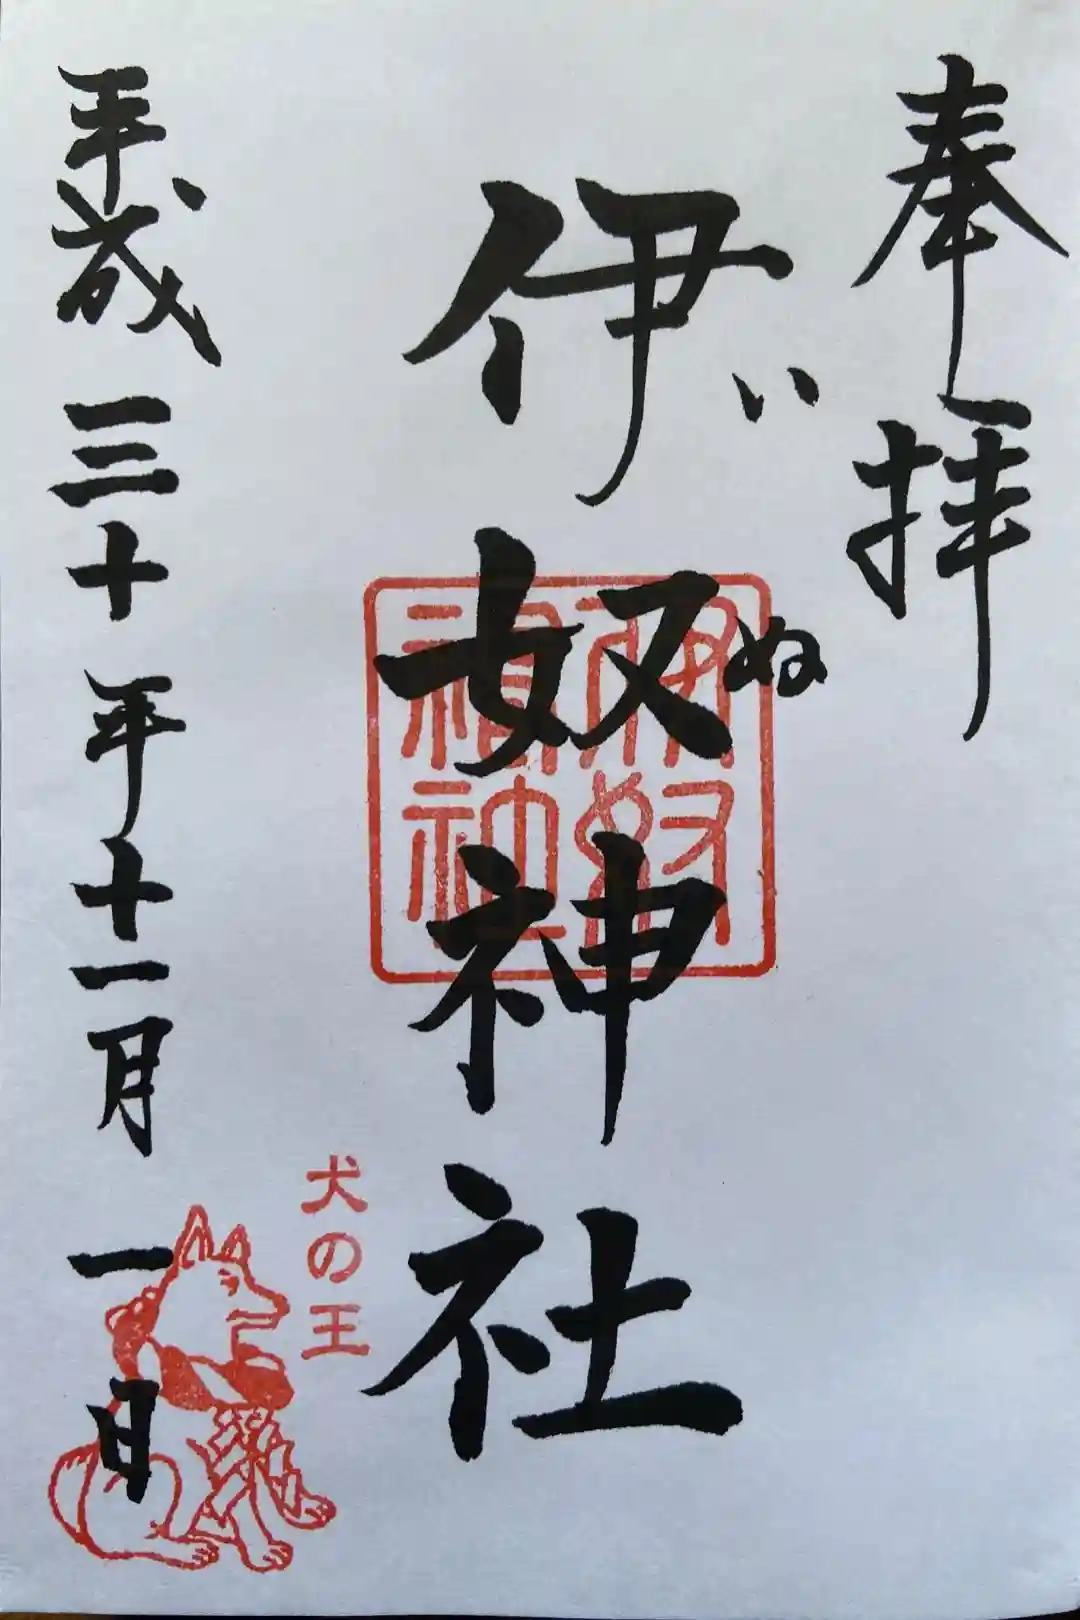 奉拝
伊奴神社
いぬ
犬の王
平成三十年十一月一日